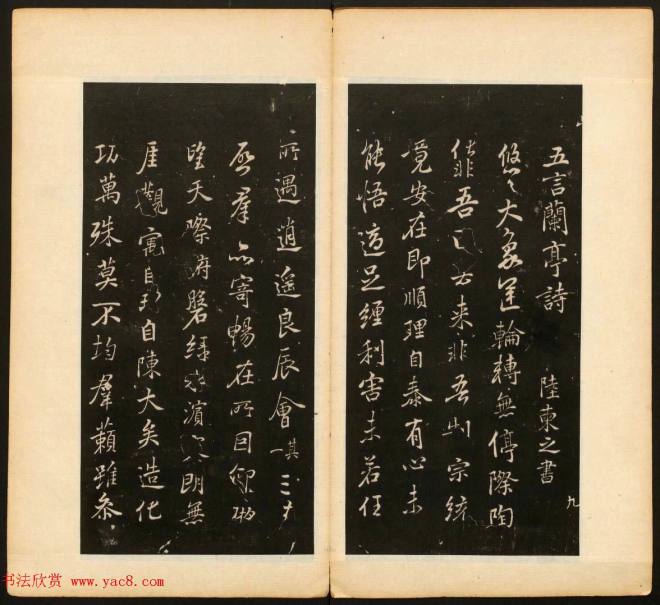 五言蘭亭詩 陸柬之書
悠〻大象運輪轉無停際陶
化非吾因去來非吾制宗統
竟安在即順理自泰有心未
能悟適足纏利害未若任
九
所遇逍遙良辰會其一三春
啓羣品寄暢在所因仰
望天際俯磐緑水濱寥朗無
厓觀寓目理自陳大矣造化
功萬殊莫不均羣籟雖參
书法欣赏 www.yac8.com